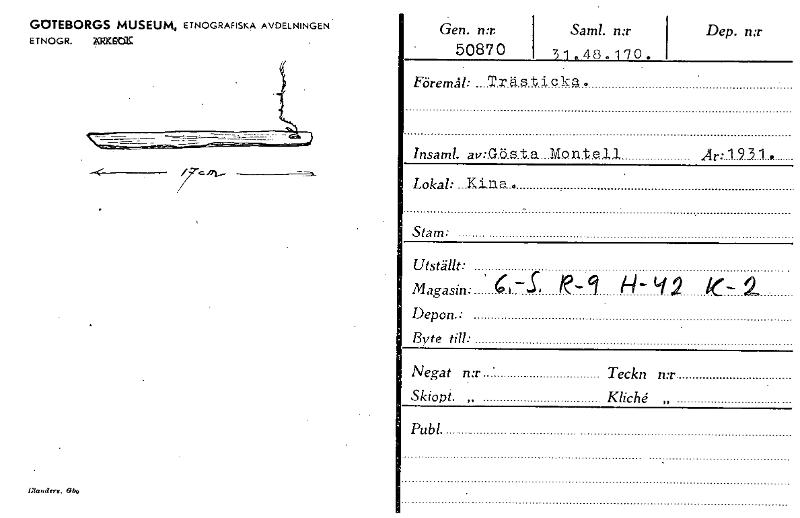 GÖTEBORGS MUSEUM, ETNOGRAFISKA AVDELNINGEN
ETNOGR. ARKEOL
17 cm
Elanders, Gbg
Gen. n:r Saml. n:r Dep. n:r
50870 31.48.170.
Föremål: Trästicka.
Insaml. av: Gösta Montell År: 1931.
Lokal: Kina.
Stam:
Utställt:
Magasin: 6.-S. R-9 H-42 K-2
Depon.:
Byte till:
Negat n:r Teckn n:r
Skiopt. „ Kliché „
Publ.